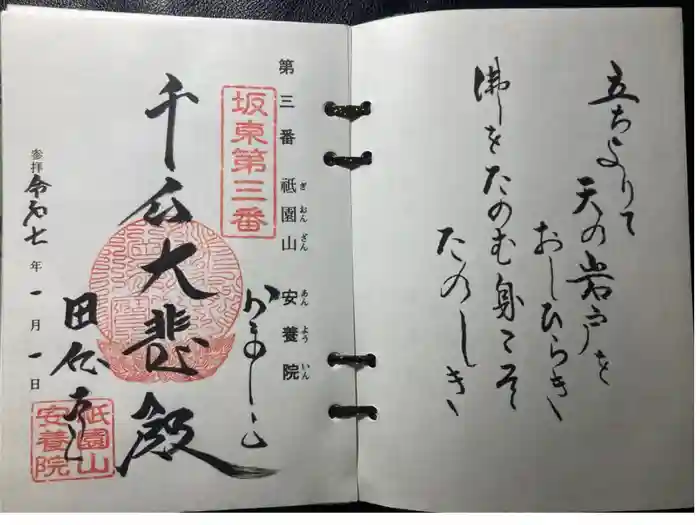 立ちよりて
天の岩戸を
おしひらき
佛をたのむ身こそ
たのしき
第三番 祗園山 安養院
ぎおんざん あんよういん
坂東第三番
かまくら
千手大悲殿
田代寺
祗園山
安養院
参拝 令和七年一月一日